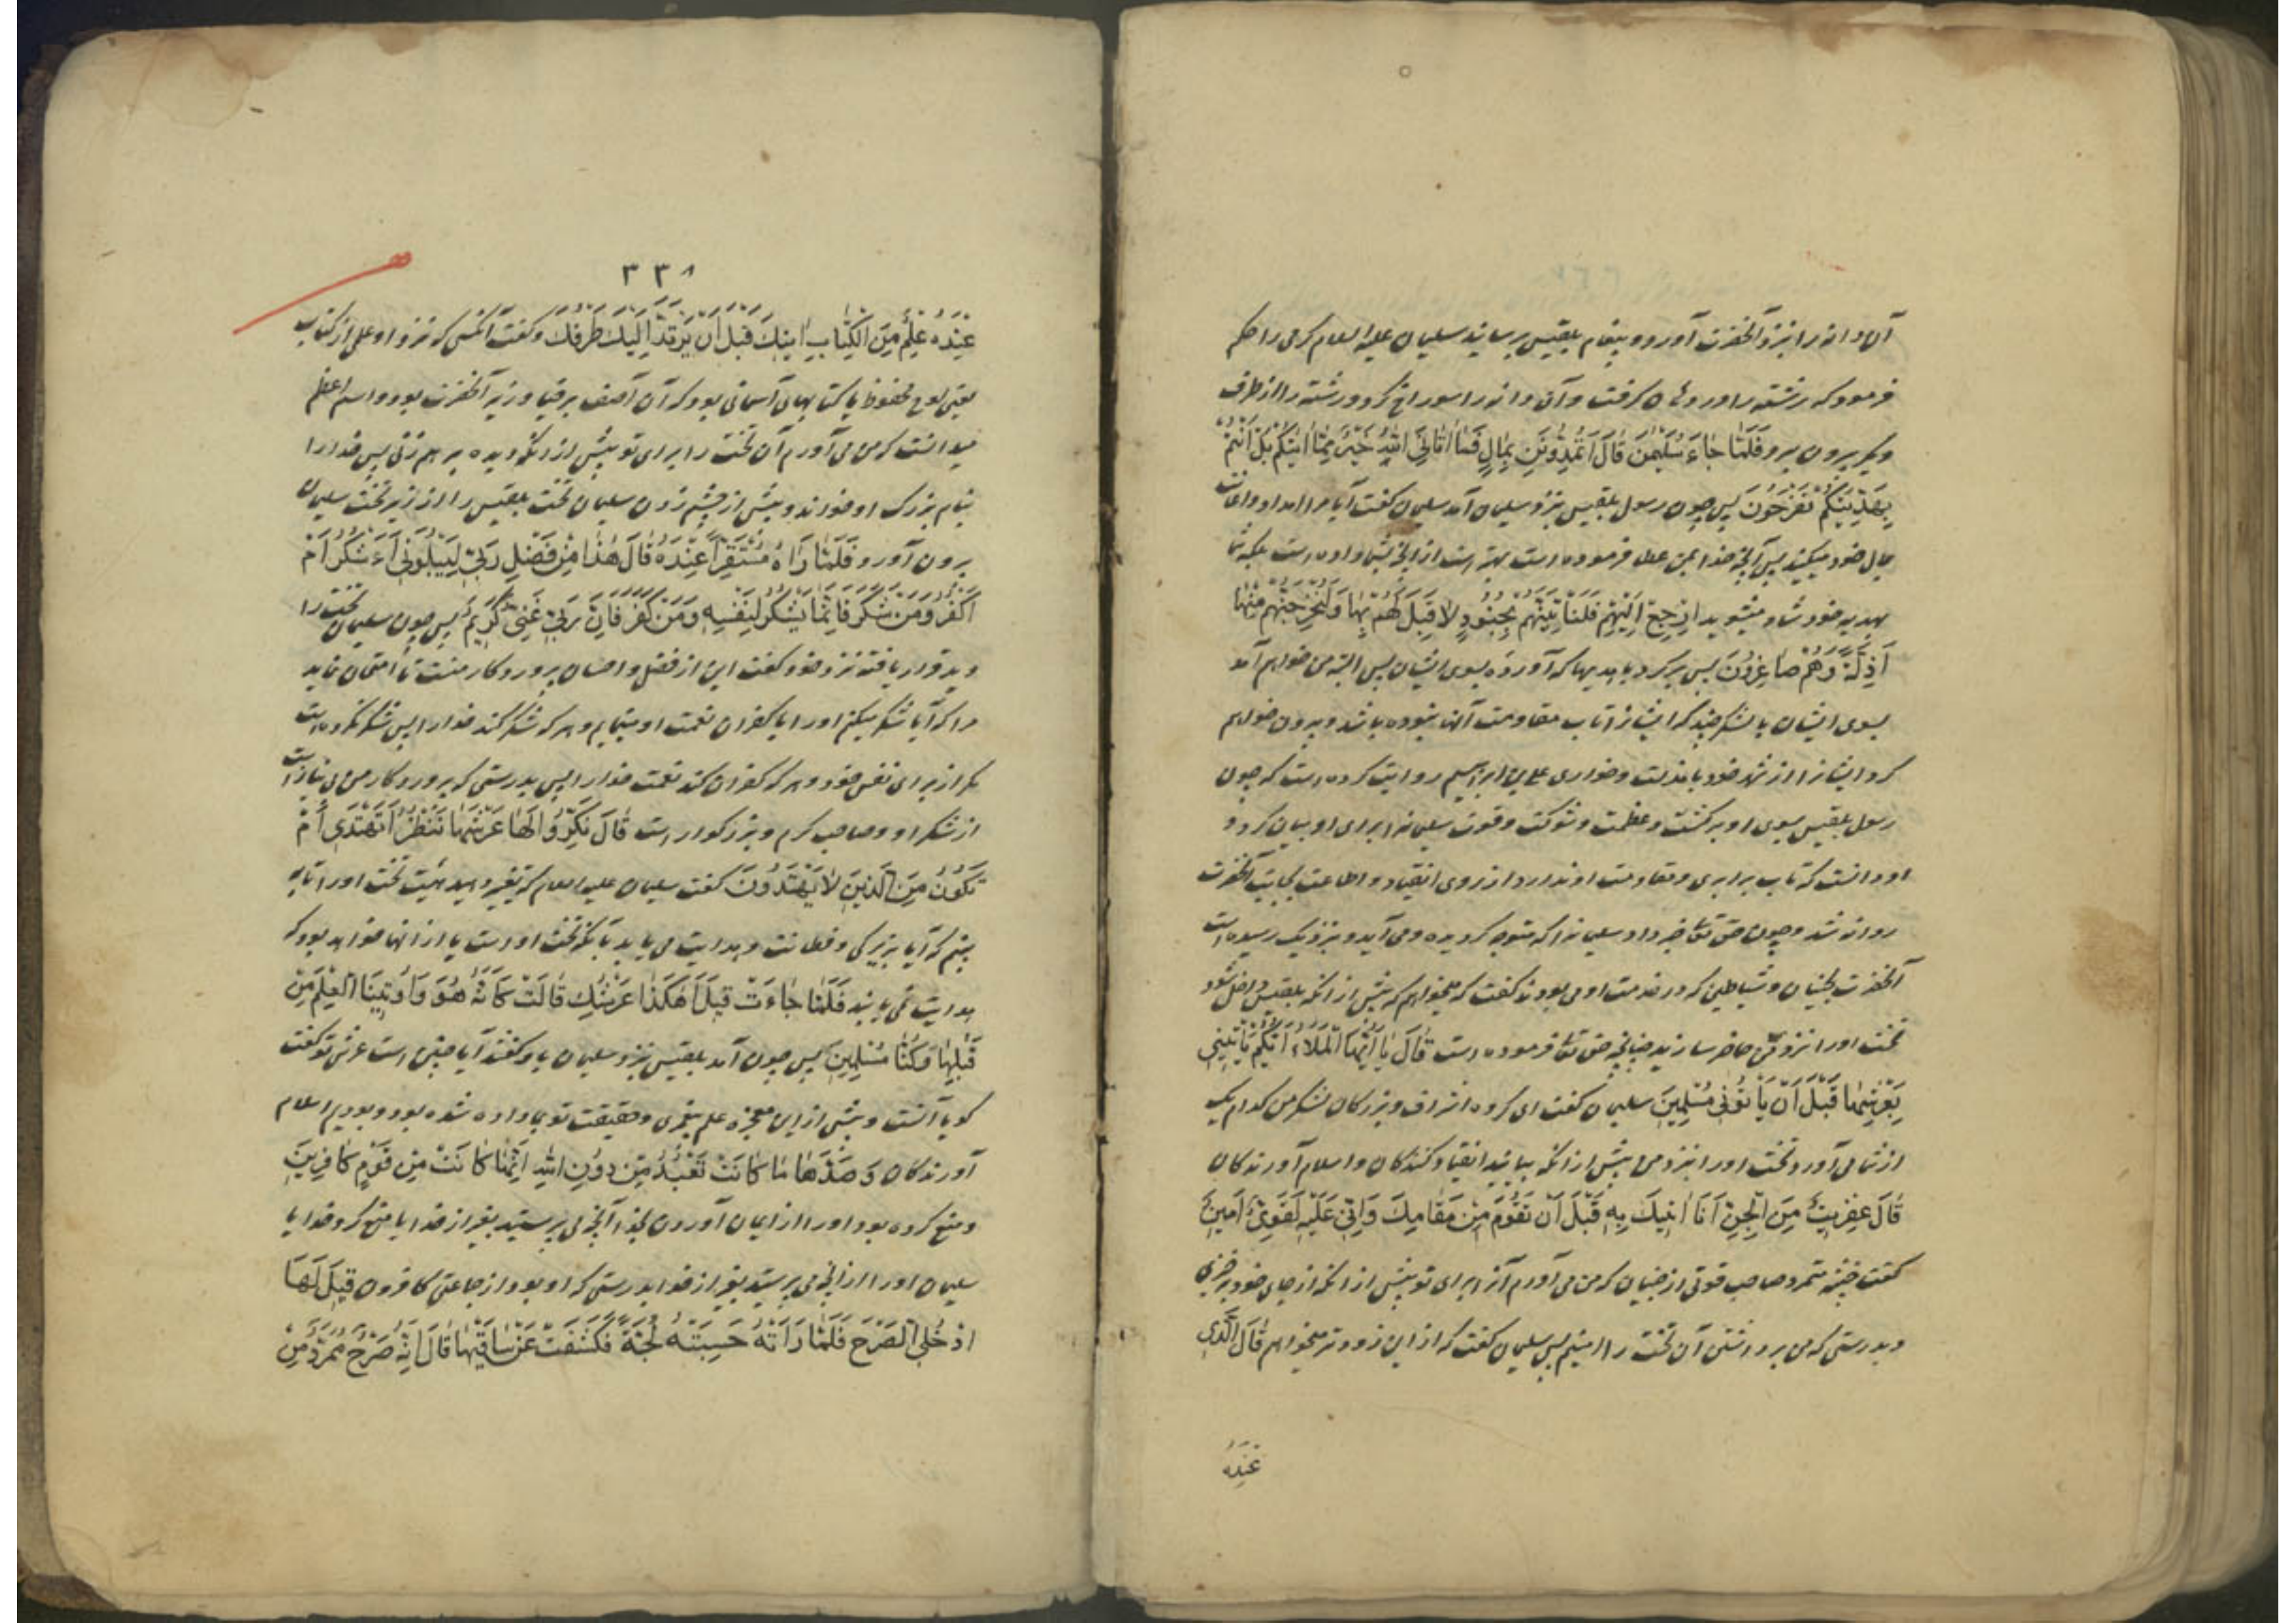 آن دانه را بنزد آنحضرت آورد و پیغام بلقیس برسانید سلیمان علیه السلام کرمی را حکم
فرمود که رشته را در دهان گرفت و آن دانه را سوراخ کرد و رشته را از طرف
دیگر بیرون برد فَلَمّٰا جٰاءَ سُلَیْمٰنَ قٰالَ اَتُمِدُّونَنِ بِمٰالٍ فَمٰا اٰتٰانِیَ اللّٰهُ خَیْرٌ مِمّٰا اٰتٰیکُمْ بَلْ اَنْتُمْ
بِهَدِیَّتِکُمْ تَفْرَحُونَ پس چون رسول بلقیس بنزد سلیمان آمد سلیمان گفت آیا مرا امداد و اعانت
بمال خود میکنید پس آنچه خدا بمن عطا فرموده است بهتر است از آنچه بشما داده است بلکه شما
بهدیه خود شاد میشوید اِرْجِعْ اِلَیْهِمْ فَلَنَاْتِیَنَّهُمْ بِجُنُودٍ لاٰ قِبَلَ لَهُمْ بِهٰا وَلَنُخْرِجَنَّهُمْ مِنْهٰا
اَذِلَّةً وَهُمْ صٰاغِرُونَ پس برگرد با هدیها که آورده بسوی ایشان پس البته من خواهم آمد
بسوی ایشان با لشکری چند که ایشانرا تاب مقاومت آنها نبوده باشد و بیرون خواهم
کرد ایشانرا از شهر خود با مذلت و خواری علی بن ابراهیم روایت کرده است که چون
رسول بلقیس بسوی او برگشت و عظمت و شوکت و قوت سلیمانرا برای او بیان کرد و
او دانست که تاب برابری و مقاومت او ندارد از روی انقیاد و اطاعت بجانب آنحضرت
روانه شد و چون حق تعالی خبر داد سلیمانرا که متوجه گردیده و می آید و نزدیک رسیده است
آنحضرت بجنیان و شیاطین که در خدمت او می بودند گفت که میخواهم که پیش از آنکه بلقیس داخل شود
تخت او را نزد من حاضر سازید چنانچه حق تعالی فرموده است قٰالَ یٰا اَیُّهَا الْمَلَاءُ اَیُّکُمْ یَاْتِینِی
بِعَرْشِهٰا قَبْلَ اَنْ یَاْتُونِی مُسْلِمِینَ سلیمان گفت ای گروه اشراف و بزرگان لشکر من کدام یک
از شما می آورد تخت او را بنزد من پیش از آنکه بیایند انقیاد کنندگان و اسلام آورندگان
قٰالَ عِفْرِیتٌ مِنَ الْجِنِّ اَنَا اٰتِیکَ بِهِ قَبْلَ اَنْ تَقُومَ مِنْ مَقٰامِکَ وَاِنِّی عَلَیْهِ لَقَوِیٌّ اَمِینٌ
گفت خبیثه متمرد صاحب قوتی از جنیان که من می آورم آنرا برای تو پیش از آنکه از جای خود برخیزی
و بدرستی که من بر داشتن آن تخت را امینم پس سلیمان گفت که از این زودتر میخواهم قٰالَ الَّذِی
عِنْدَهُ
۳۳۸
عِنْدَهُ عِلْمٌ مِنَ الْکِتٰابِ اٰتِیکَ قَبْلَ اَنْ یَرْتَدَّ اِلَیْکَ طَرْفُکَ و گفت آنکسی که نزد او علمی از کتاب
یعنی لوح محفوظ یا کتابهای آسمانی بود که آن آصف برخیا وزیر آنحضرت بود و اسم اعظم
میدانست که من می آورم آن تخت را برای تو پیش از آنکه دیده بر هم زنی پس خدا را
بنام بزرگ او خواند و پیش از چشم زدن سلیمان تخت بلقیس را از زیر تخت سلیمان
بیرون آورد فَلَمّٰا رَاٰهُ مُسْتَقِرًّا عِنْدَهُ قٰالَ هٰذٰا مِنْ فَضْلِ رَبِّی لِیَبْلُوَنِی اَءَشْکُرُ اَمْ
اَکْفُرُ وَمَنْ شَکَرَ فَاِنَّمٰا یَشْکُرُ لِنَفْسِهِ وَمَنْ کَفَرَ فَاِنَّ رَبِّی غَنِیٌّ کَرِیمٌ پس چون سلیمان تخت را
دید قرار یافته نزد خود گفت این از فضل و احسان پروردگار منست تا امتحان نماید
مرا که آیا شکر میکنم او را یا کفران نعمت او مینمایم و هر که شکر کند خدا را پس شکر نکرده است
مگر از برای نفس خود و هر که کفران کند نعمت خدا را پس بدرستی که پروردگار من بی نیاز است
از شکر او و صاحب کرم و بزرگوار است قٰالَ نَکِّرُوا لَهٰا عَرْشَهٰا نَنْظُرْ اَتَهْتَدِی اَمْ
تَکُونُ مِنَ الَّذِینَ لاٰ یَهْتَدُونَ گفت سلیمان علیه السلام که تغییر دهید هیئت تخت او را تا به
بینم که آیا بزیرکی و فطانت و هدایت می یابد بآنکه تخت او است یا از آنها خواهد بود که
هدایت نمی یابند فَلَمّٰا جٰاءَتْ قِیلَ اَهٰکَذٰا عَرْشُکِ قٰالَتْ کَاَنَّهُ هُوَ وَاُوتِینَا الْعِلْمَ مِنْ
قَبْلِهٰا وَکُنّٰا مُسْلِمِینَ پس چون آمد بلقیس بنزد سلیمان باو گفتند آیا چنین است عرش تو گفت
گویا آنست و پیش از این معجزه علم به پیغمبری و حقیقت تو بما داده شده بود و بودیم اسلام
آورندگان وَصَدَّهٰا مٰا کٰانَتْ تَعْبُدُ مِنْ دُونِ اللّٰهِ اِنَّهٰا کٰانَتْ مِنْ قَوْمٍ کٰافِرِینَ
و منع کرده بود او را از ایمان آوردن بخدا آنچه می پرستید بغیر از خدا یا منع کرد خدا یا
سلیمان او را از آنچه می پرستید بغیر از خدا بدرستی که او بود از جماعتی کافرون قِیلَ لَهَا
ادْخُلِی الصَّرْحَ فَلَمّٰا رَاَتْهُ حَسِبَتْهُ لُجَّةً فَکَشَفَتْ عَنْ سٰاقَیْهٰا قٰالَ اِنَّهُ صَرْحٌ مُمَرَّدٌ مِنْ